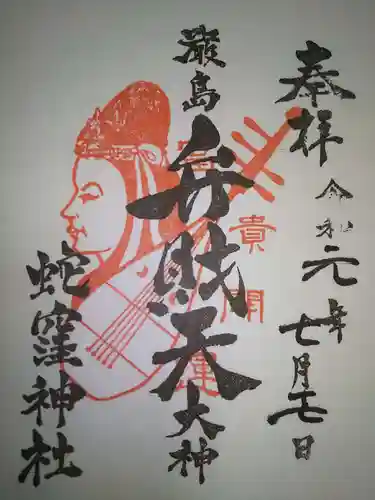 奉拝 令和元年七月 日
嚴島
弁財天
大神
蛇窪神社
富貴開運